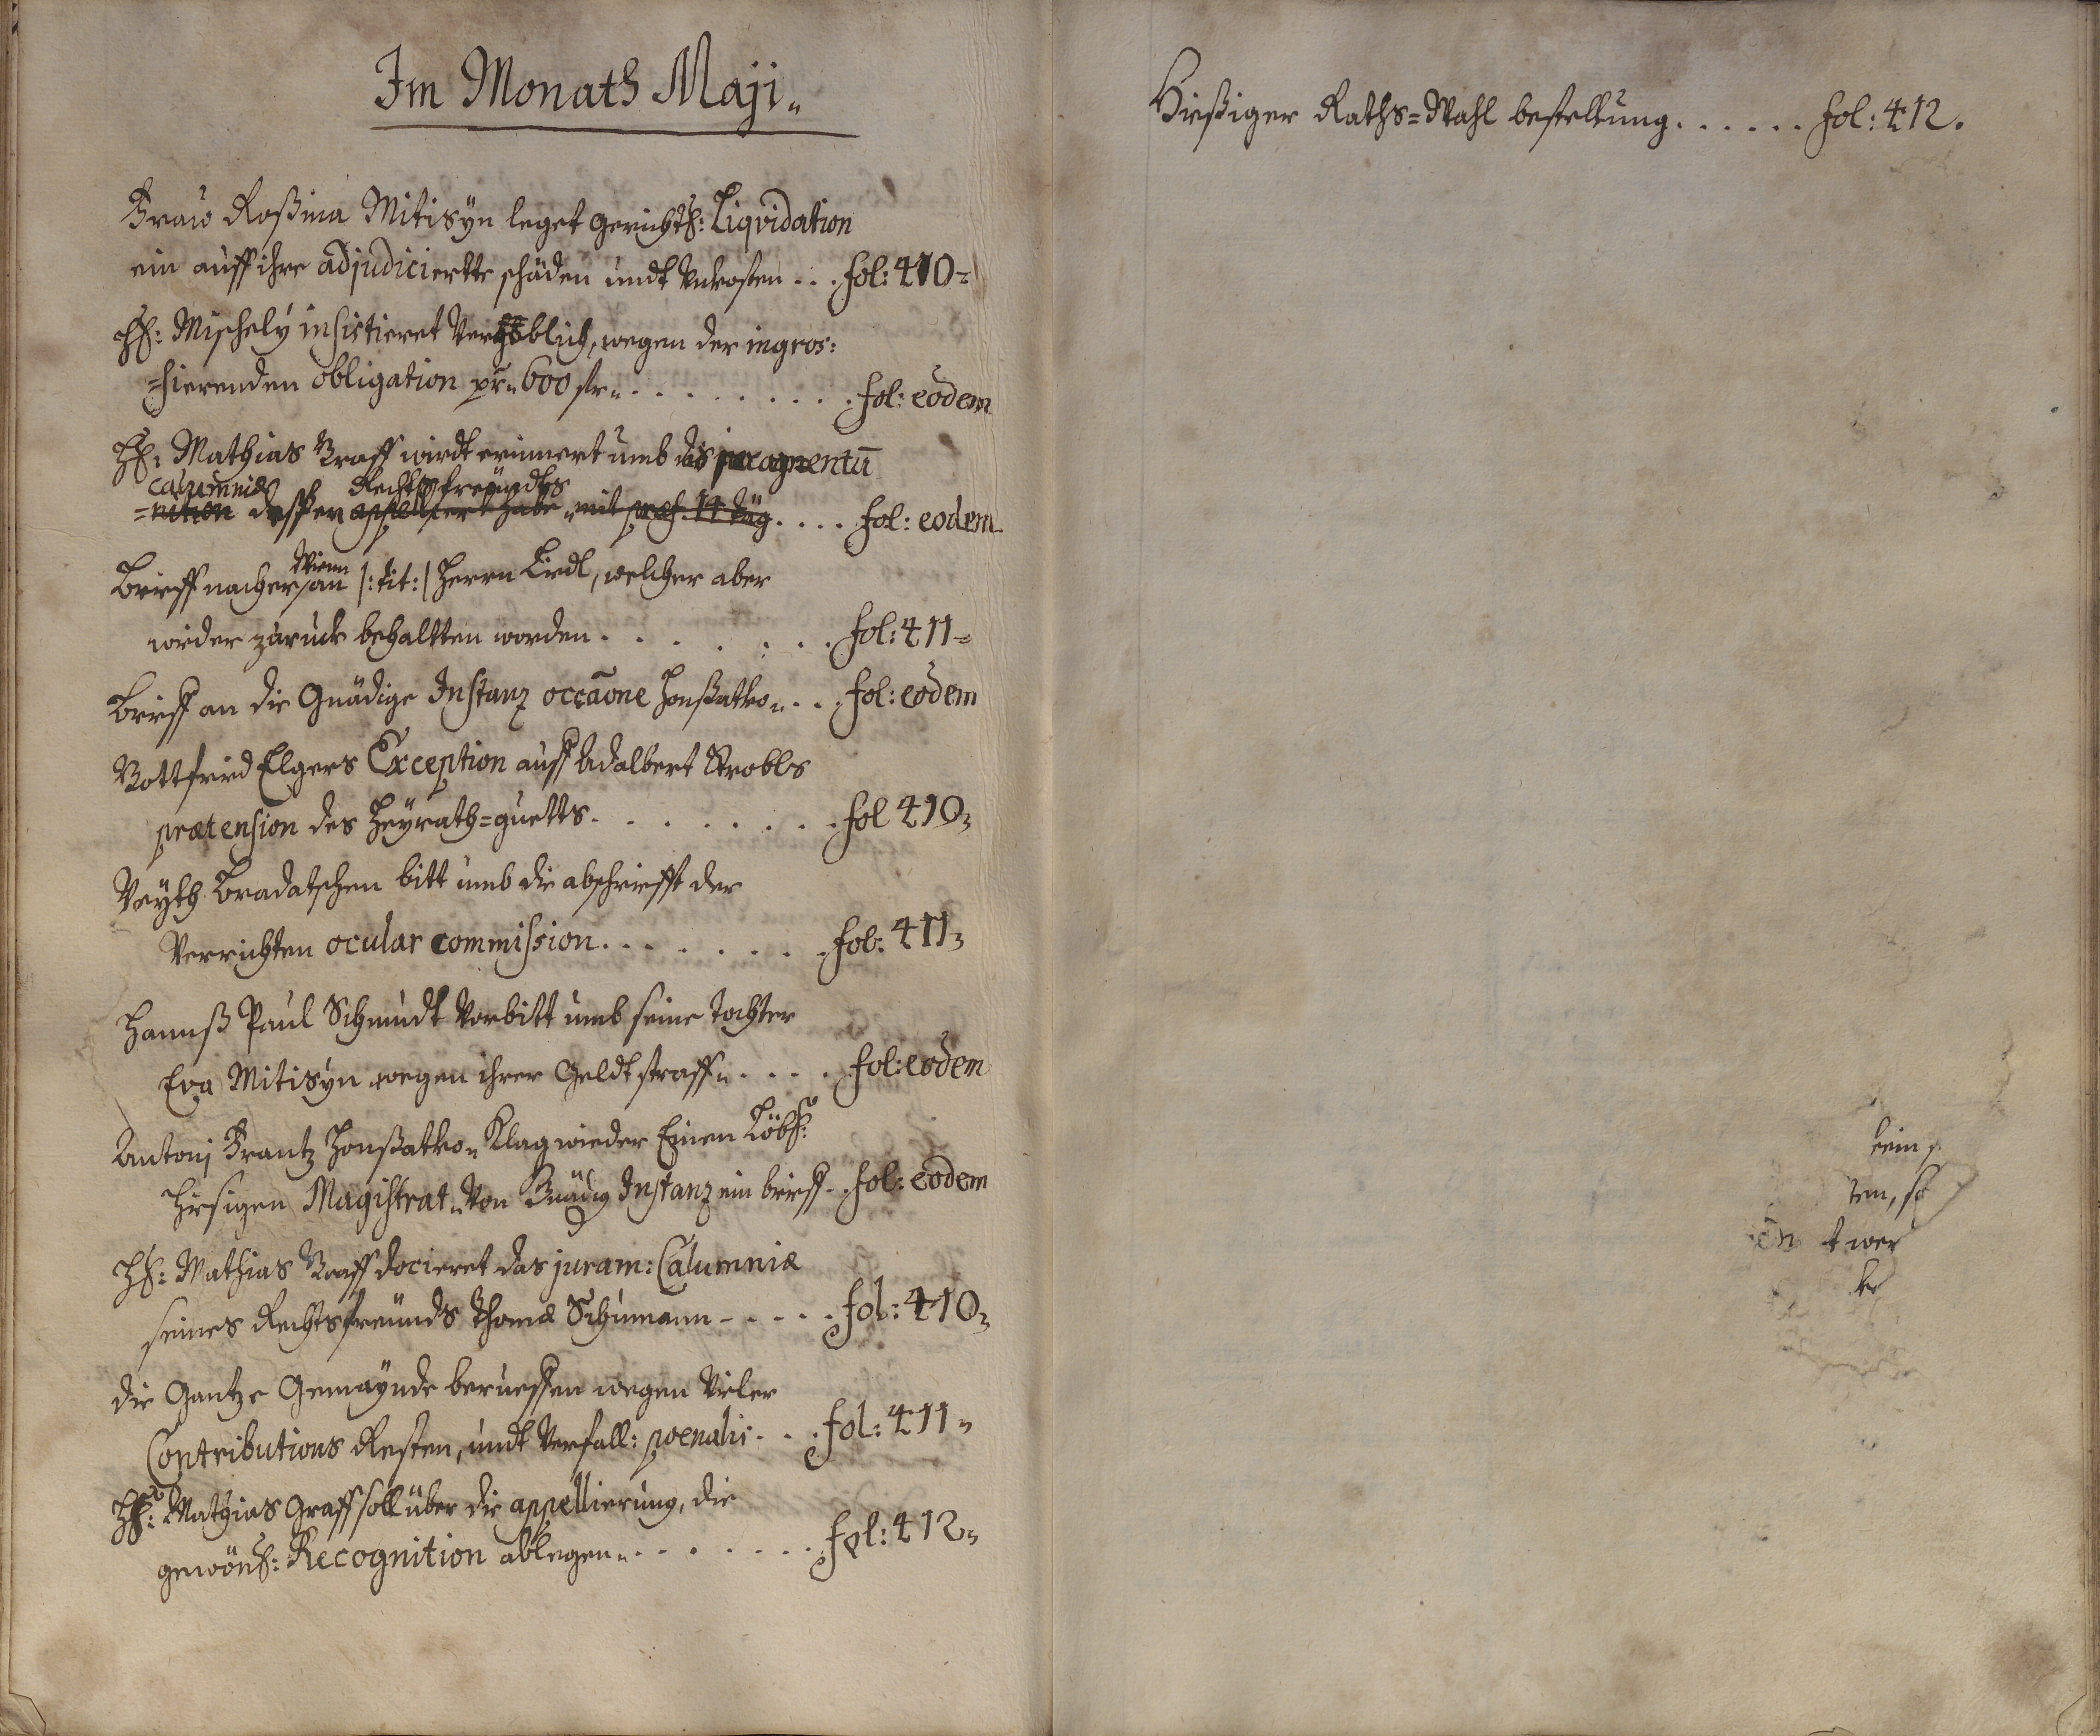 Im Monath Maji„
Fraw Roßina Mitisÿn leget gerichtl: Liqvidation
ein auff ihre adjudicierte schäden undt Unkosten . . . fol: 410=
H: Mischelÿ insistieret Vergöblich, wegen der ingros:
=sierenden obligation pr„ 600 fl„ . . . . . . . . . fol: eodem
H: Mathias Graff wirdt erinnert umb das juramentū
calumniæ Rechtsfreündts
=nition dessen appelliert habe„ mit præf. 14 täg . . . . fol: eodem
Wienn
Brieff nacher an /: tit: / Herrn Liedl, welcher aber
wieder zuruck behaltten worden . . . . . . . fol: 411=
Brieff an die Gnädige Instanz occāone Honßatko„ . . . fol: eodem
Gottfried Elgers Exception auff Adalbert Strobls
prætension des Heÿrath=guetts . . . . . . . fol 410„
Veÿth Bradatschen bitt umb die abschriefft der
Verrichten ocular commission . . . . . . . fol: 411„
Hannß Paul Schmidt Vorbitt umb seine tochter
Eva Mitisÿn wegen ihrer Geldtstraff„ . . . . fol: eodem
Antonj Frantz Honßatko„ Klag wieder Einen Löbl:
hiesigen Magistrat„ Von Gnädig Instanz ein brieff . . fol: eodem
H: Mathias Graff docieret das juram: Calumniæ
seines Rechtsfreünds Thomæ Schumann - . . . . fol: 410„
die Gantze Gemaÿnde berueffen wegen Vieler
Contributions Resten, undt Verfall: poenalis . . . fol: 411„
H: Mathias Graff soll über die appellierung, die
gewönl: Recognition ablegen„ . . . . . . . fol: 412„
Hießiger Raths=Wahl bestellung . . . . . . fol: 412.